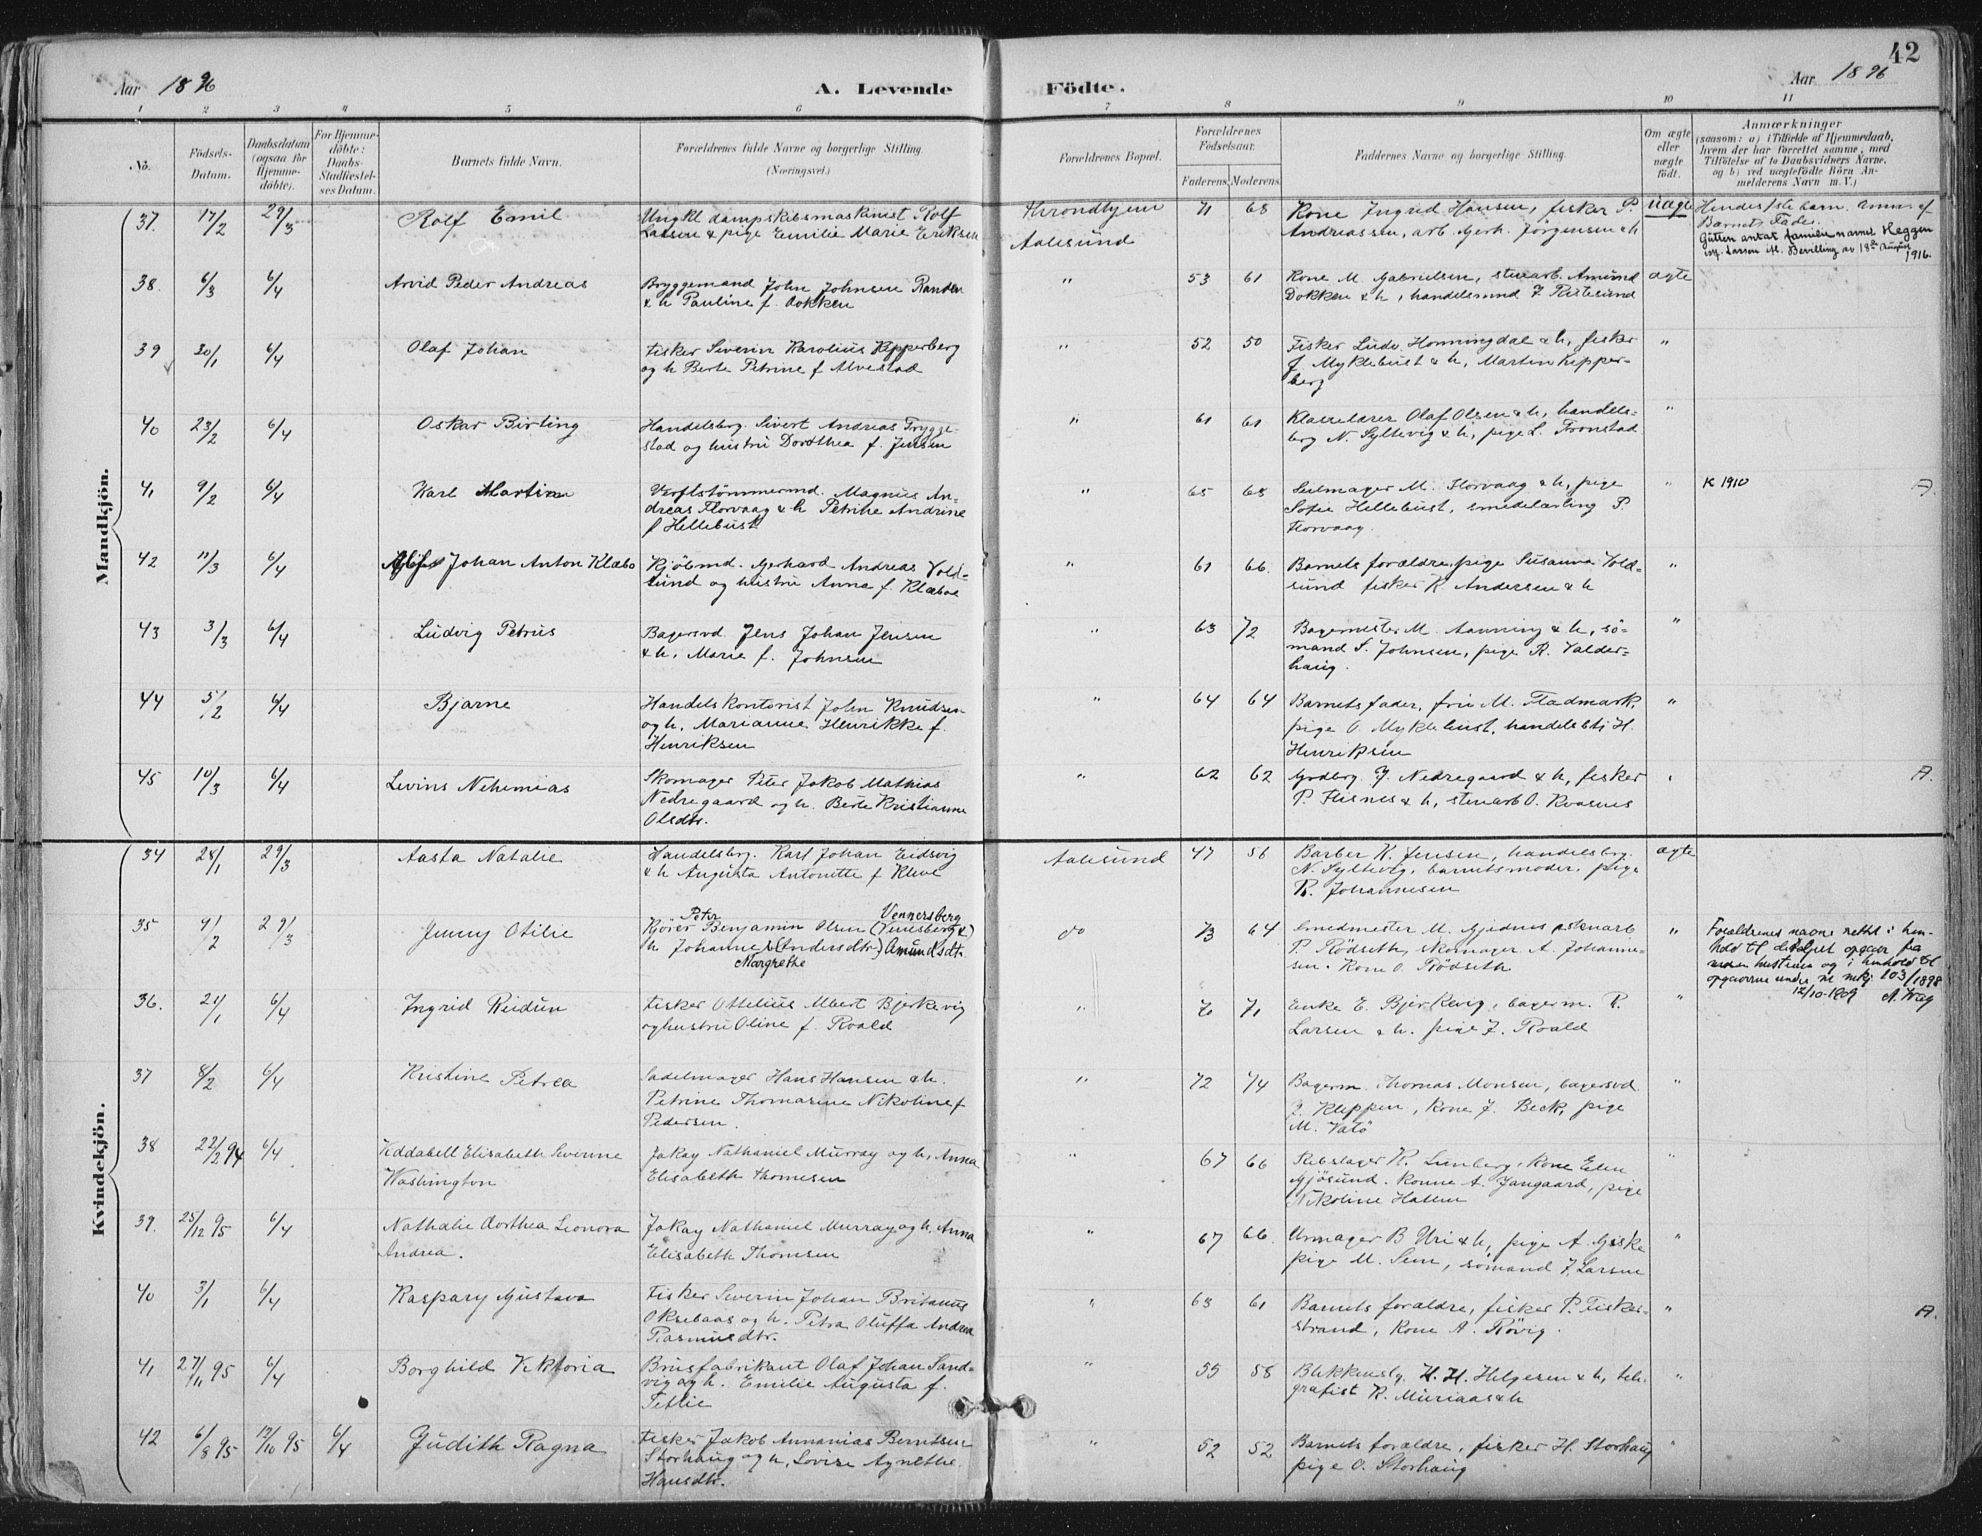 42
Aar 1896
A. Levende Födte.
Aar 1896
1 2 3 4 5 6 7 8 9 10 11
No.
Födsels-Datum.
Daabsdatum (ogsaa for Hjemme-döbte).
For Hjemme-döbte: Daabs-Stadfæstel-ses Datum.
Barnets fulde Navn.
Forældrenes fulde Navne og borgerlige Stilling.
(Næringsvei.)
Forældrenes Bopæl.
Forældrenes Födselsaar.
Faderens. Moderens.
Faddernes Navne og borgerlige Stilling.
Om ægte eller uægte födt.
Anmærkninger
(saasom: a) i Tilfælde af Hjemmedaab, hvem der har forrettet samme, med Tilföielse af to Daabsvidners Navne, og b) ved uægtefödte Börn An-melderens Navn m. V.)
Mandkjön.
37. 17/2 29/3 Rolf Emil
Ungkl dampskibsmaskinist Rolf
Larsen & pige Emilie Marie Eriksen
Throndhjem
Aalesund
71 68
Kone Ingrid Hansen, fisker P.
Andreassen, arb. Gerh. Jörgensen & h
uægte
Hendes 1ste barn. Anm. af
Barnets Fader.
Gutten antat familienavnet Heggen
istf. Larsen ifl. Bevilling av 18de August
1916.
38. 6/3 6/4 Arvid Peder Andreas
Bryggemand John Johnsen Randen
& h Pauline f. Dokken
" 53 61
Kone M. Gabrielsen, stenarb. Amund
Dokken & h, handelsmd J. Ristesund
ægte
39 30/1 6/4 Olaf Johan
Fisker Severin Karolius Kipperberg
og h Berte Petrine f Alvestad
" 52 50
Fisker Ludv. Honningdal & h, fisker
J. Myklebust & h, Martin Kipper-
berg
"
40 23/2 6/4 Oskar Birling
Handelsbg. Sivert Andreas Trygge-
stad og hustru Dorothea f. Jensen
" 61 61
Klasselærer Olaf Olsen & h, handels-
berg N. Syltevig & h, pige L. Tronstad
"
41 9/2 6/4 Karl Martin
Verftstömmermd. Magnus An-
dreas Florvaag & h Petrine Andrine
f Hellebust
" 65 68
Seilmager M. Florvaag & h, pige
Sofie Hellebust, smedelærling P.
Florvaag.
" K 1910 A.
42 11/3 6/4 Johan Anton Klæbo
Kjöbmd. Gerhard Andreas Vold-
sund og hustru Anna f. Klæboe
" 61 66.
Barnets forældre, pige Susanna Vold-
sund fisker K. Andersen & h
"
43 3/3 6/4 Ludvig Petrus
Bagersvd. Jens Johan Jensen
& h. Marie f. Johnsen
" 63 72
Bagermester M. Aanning & h, sö-
mand S. Johnsen, pige R. Valder-
haug.
"
44 5/2 6/4 Bjarne
Handelskontorist John Knudsen
og h. Marianne Henrikke f.
Henriksen
" 64 64
Barnets fader, frü M. Fladmark,
pige O. Myklebust, handelsbtj H.
Henriksen
"
45 10/3 6/4 Levins Nehemias
Skomager Peter Jakob Mathias
Nedregaard og h. Berte Kristianne
Olsdtr.
" 62 62
Grdbrg. J. Nedregaard & h, fisker
P. Flisnes & h, stenarb O. Kvasnes
A.
Kvindekjön.
34 28/1 29/3 Aasta Natalie
Handelsbrg. Karl Johan Eidsvig
& h Augusta Antonette f Kleve
Aalesund 47 56
Barber K. Jensen, handelsbrg.
N. Syltevig, barnets moder, pige
R. Johannesen
ægte
35 4/2 29/3 Jenny Otilie
Peter Vennersberg
Kjörer Benjamin Olsen (Venesberg &)
h Johanne (Andersdtr.) Amundsdtr.
Margrethe
do 73 64
Smedmester M. Gjidnes
P. Rödseth, skomager A. Johanne-
sen. Kone O. Rödseth
"
Forældrenes navne rettet i hen-
hold til opgave fra
hustruen og i henhold til
opgaverne under N. mkj. 103/1898
12/10-1909
36. 21/1 6/4 Ingrid Reidun
Fisker Ottelius Albert Bjerkevig
og hustru Oline f. Roald
" 71
Enke E. Bjerkevig, bagerm. R.
Larsen & h. pige J. Roald
"
37 8/2 6/4 Kristine Petrea
Sadelmager Hans Hansen & h.
Petrine Thomasine Nikoline f
Pedersen.
" 72 74
Bagerm. Thomas Monsen, bagersvd.
J. Kleppen, Kone J. Beck, pige
M. Vatö
"
38 22/2 94 6/4 Elisabeth Severine
Washington
Jakay Nathaniel Murray og h, Anna
Elisabeth Thomesen
" 67 66
Rebslager K. Lunberg, Kone Elen
Gjösund. Konne A. Jangaard, pige
Nikoline Hatlen
"
39. 25/12 95 6/4 Nathalie Dorthea Leonora
Andrea.
Jakay Nathaniel Murray og h. Anna
Elisabeth Thomesen
" 67 66.
Urmager B Uri & h, pige A. Giske
pige M. Sem, sömand J. Larsen
"
40 3/1 6/4 Kaspary Gustava
Fisker Severin Johan Britanus
Oksebaas og h. Petra Oluffa Andrea
Rasmusdtr.
" 63 61
Barnets forældre, fisker P. Fisker-
strand, Kone A. Rövig.
" A.
41 27/11 95 6/4 Borghild Viktoria
Brusfabrikant Olaf Johan Sand-
vig og h. Emilie Augusta f.
Tetlie
" 55 58
Blikkenslg. H. H. Helgesen & h, tele-
grafist K. Muriaas & h
"
42 6/8 95 12/10 95 6/4 Judith Ragna
Fisker Jakob Annanias Berntsen
Storhaug og h, Lovise Agnethe
Hansdtr.
" 52 52
Barnets forældre, fisker H. Storhaug
pige O. Storhaug
"